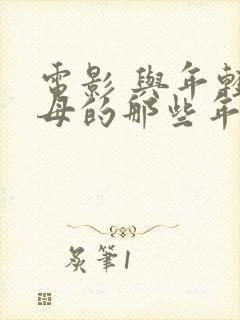 電影 與年輕
母的那些年
炙筆1